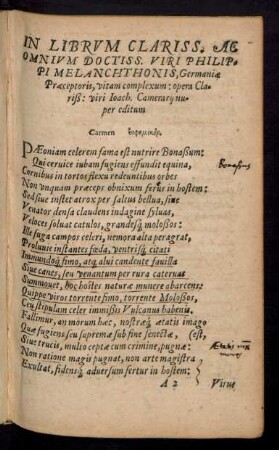 IN LIBRVM CLARISS. AC
OMNIVM DOCTISS. VIRI PHILIP-
PI MELANCHTHONIS, Germaniæ
Præceptoris, vitam complexum: opera Cla-
riss: viri Ioach. Camerarij nu-
per editum
Carmen
PÆoniam celerem fama est nutrire Bonassum:
Qui ceruice iubam fugitus effundit equina,
Cornibus in tortos flexu redeuntibus orbes
Non vnquam præceps obnixum fertur in hostem:
Sed siue instet atrox per saltus bellua, siue
Venator densa claudens indagine syluas,
Veloces soluat catulos, grandesq́ molossos:
Ille fuga campos celeri, nemora alta peragrat,
Proluuie instantes fœda, ventrisq́ citati
Immundoq́ fimo, atq alui candente fauilla
Siue canes, seu venantum per rura cateruas
Summouet, hoc hostes naturæ munere abarcens:
Quippe viros torrente fimo, torrente Molossos,
Ceu stipulam celer immissis Vulcanus habenis.
Fallimur, an morum hæc, nostræq́ ætatis imago
Quæ fugiens seu supremæ sub fine senectæ, (est,
Siue trucis, multo ceptæ cum crimine, pugnæ:
Non ratione magis pugnat, non arte magistra
Exultat, fidensq́ aduersum fertur in hostem:
A 2 Virus
Bonassus